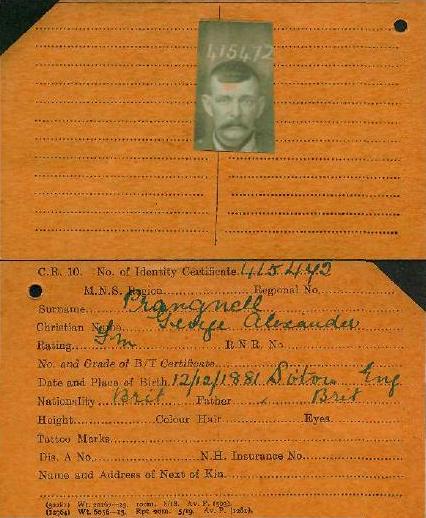 415472
C.R. 10. No. of Identity Certificate. 415472
M.N.S. Region Regional No.
Surname Prangnell
Christian Name George Alexander
Rating Fm R.N.R. No.
No. and Grade of B/T Certificate
Date and Place of Birth 12/12/1881 Soton Eng
Nationality Brit Father Brit
Height Colour Hair Eyes
Tattoo Marks
Dis. A No. N.H. Insurance No.
Name and Address of Next of Kin
Wt. 8/18. Av. P.
Wt. 6056—23. Rpt 5/19. Av. P.